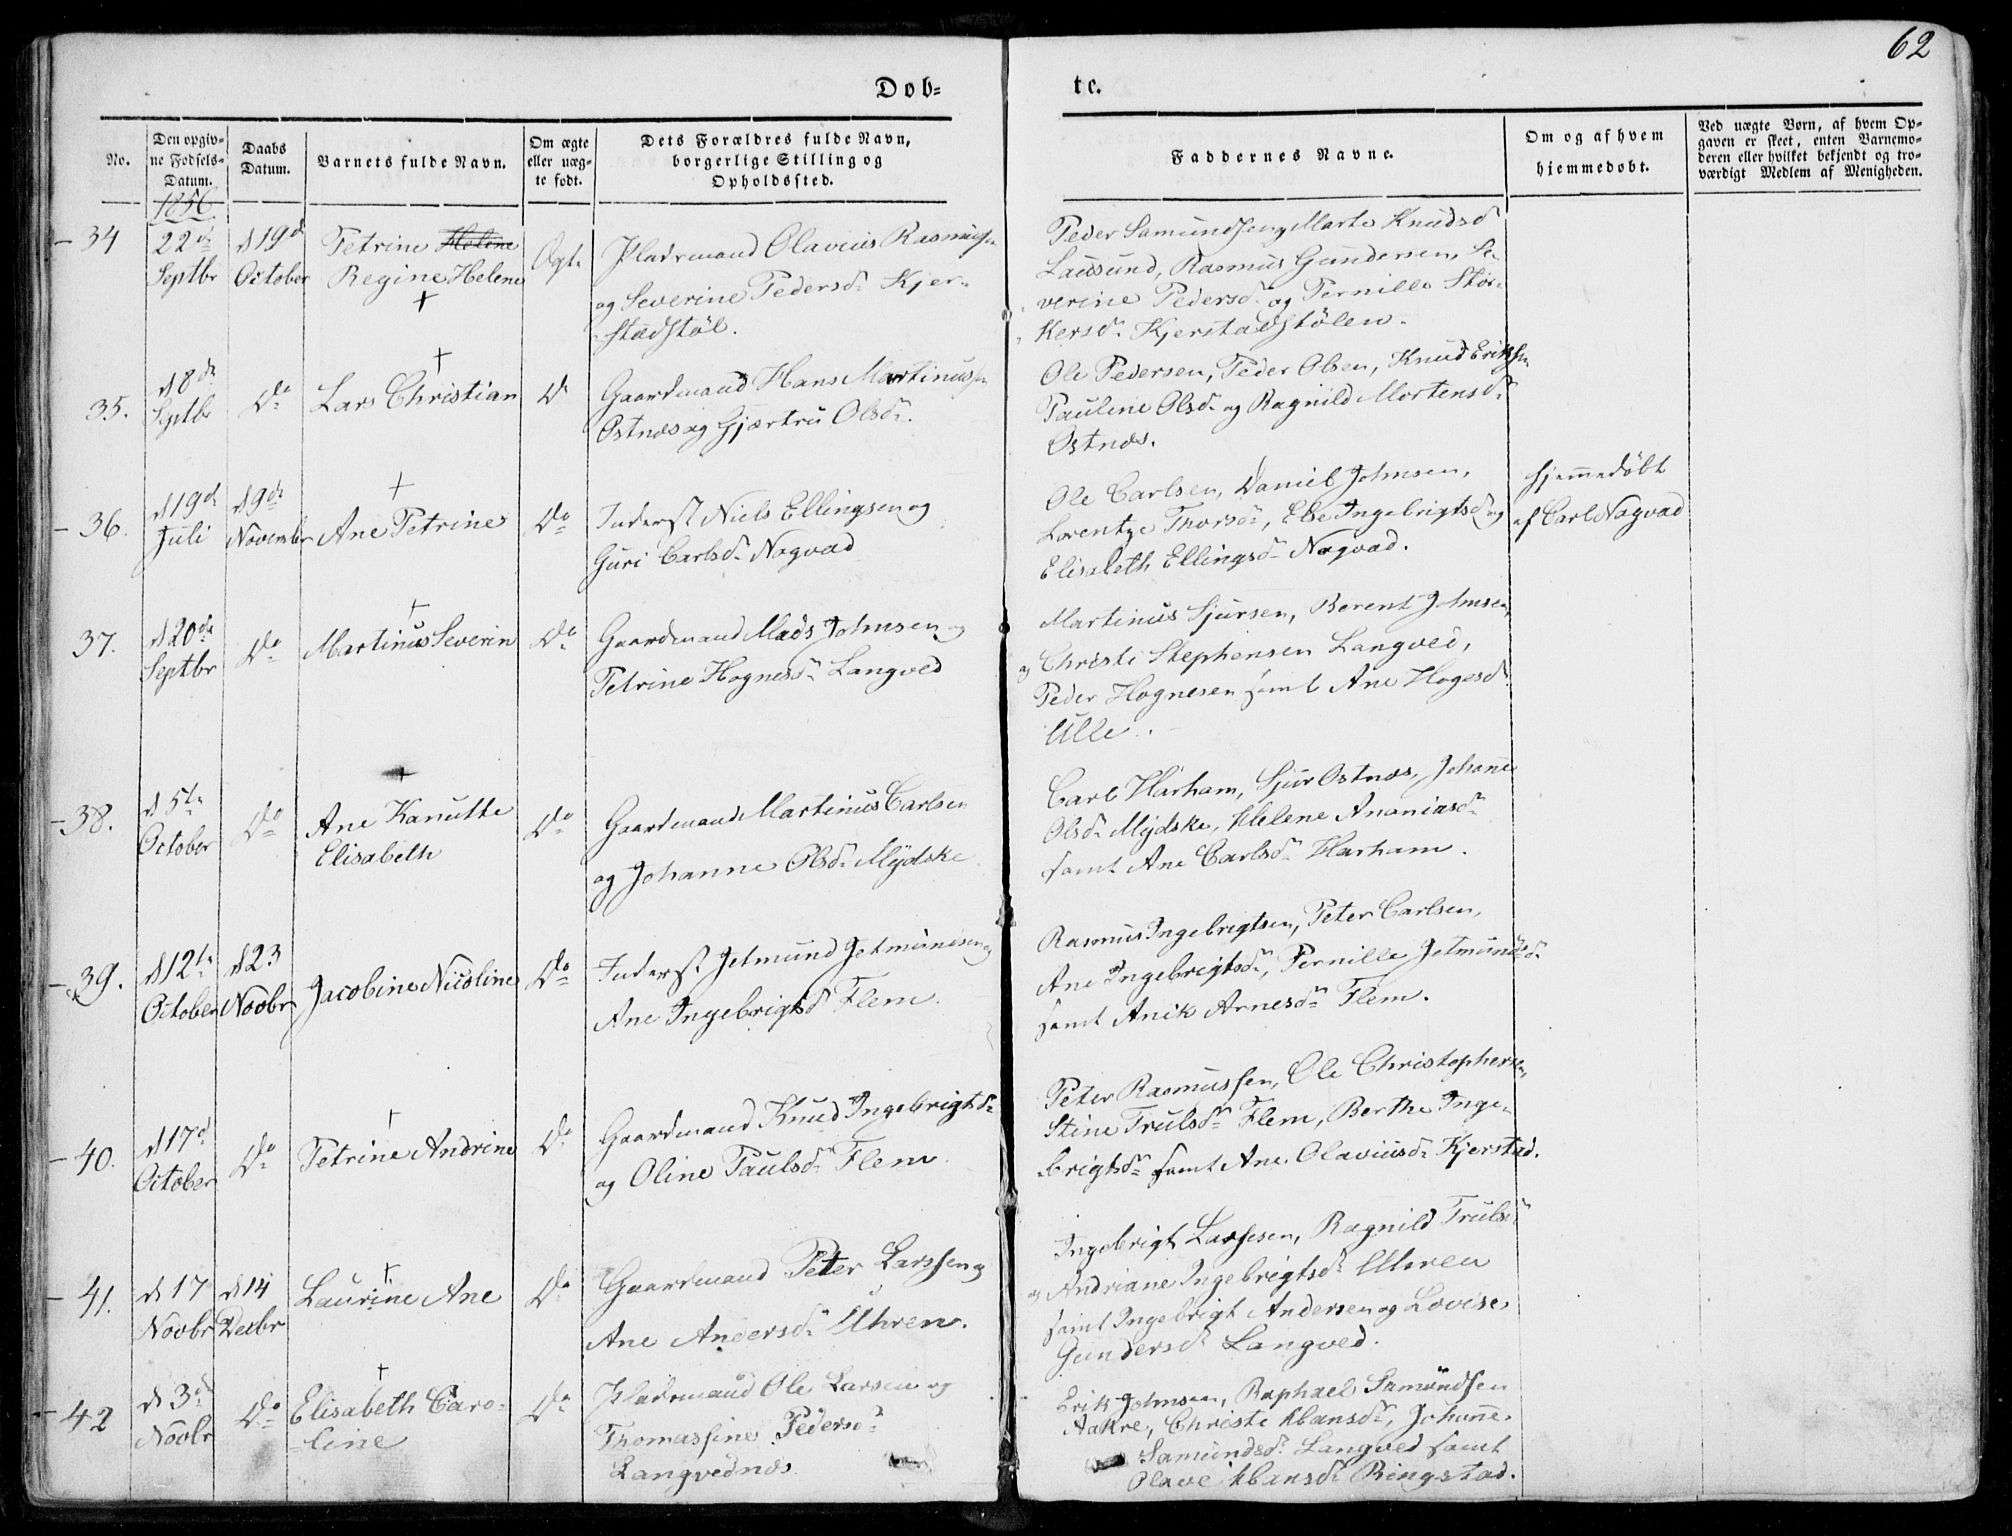 62
Døb=
te.
No.
Den opgiv-
ne Fødsels-
Datum.
Daabs
Datum.
Barnets fulde Navn.
Om ægte
eller uæg-
te født.
Dets Forældres fulde Navn,
borgerlige Stilling og
Opholdssted.
Faddernes Navne.
Om og af hvem
hjemmedøbt.
Ved uægte Børn, af hvem Op-
gaven er skeet, enten Barnemo-
deren eller hvilket bekjendt og tro-
værdigt Medlem af Menigheden.
1856
34
22de
Septbr
d 19d
October
Petrine Helene
Regine Helene
+
Ægte
Pladsmand Olavius Rasmusen
og Severine Pedersdr Kjer-
stadstøl.
Peder Samundsen, Marte Knudsdr
Lausund, Rasmus Gundersen, Se-
verine Pedersdr og Pernille Stor-
kersdr Kjerstadstølen.
35.
d 8de
Septbr
Do
+
Lars Christian
Do
Gaardmand Hans Martinussen
Østnæs og Gjærtru Olsdr.
Ole Pedersen, Peder Olsen, Knud Eriksen
Pauline Olsdr og Ragnild Mortensdr
Østnæs.
36.
d 19de
Juli
d 9de
November
+
Ane Petrine
Do
Inderst Niels Ellingsen og
Guri Carlsdr Nogvad
Ole Carlsen, Daniel Johnsen,
Lorentze Thorsdr, Else Ingebrigtsdr og
Elisabeth Ellingsdr Nogvad.
hjemmedøbt
af Carl Nogvad
37.
d 20de
Septbr
Do
+
Martinus Severin
Do
Gaardmand Mads Johnsen og
Petrine Hognesdr Langved
Martinus Sjursen, Berent Johnsen,
og Christi Stephensen Langved,
Peder Hognesen samt Ane Hogesdr
Ulle.
38.
d 5te
October
Do
+
Ane Kanutte
Elisabeth
Do
Gaardmand Martinus Carlsen
og Johanne Olsdr Mydske
Carl Harham, Sjur Østnæs, Johanne
Olsdr Mydske, Helene Ananiasdr
samt Ane Carlsdr Harham.
39.
d 12te
October
d 23
Novbr
Jacobine Nicoline
Do
Inderst Jetmund Jetmundsen og
Ane Ingebrigtsdr Flem.
Rasmus Ingebrigtsen, Peter Carlsen,
Ane Ingebrigtsdr, Pernille Jetmundsdr
samt Anik Arnesdr Flem.
40.
d 17d
October
Do
+
Petrine Andrine
Do
Gaardmand Knud Ingebrigtsdr
og Oline Paulsdr Flem.
Peter Rasmussen, Ole Christophersen,
Stine Trulsdr Flem, Berthe Inge-
brigtsdr samt Ane Olaviusdr Kjerstad.
41.
d 17
Novbr
d 14
Decbr
+
Laurine Ane
Do
Gaardmand Peter Larssen og
Ane Andersdr Uhren.
Ingebrigt Larsesen, Ragnild Trulsdr
og Andriane Ingebrigtsdr Uhren
samt Ingebrigt Andersen og Lovise
Gundersdr Langved.
42
d 3d
Novbr
Do
+
Elisabeth Caro-
line
Do
Pladsmand Ole Larsen og
Thomassine Pedersdr
Langvednæs
Erik Johnsen, Raphael Samundsen
Aakre, Christi Hansdr, Johanne
Samundsdr Langved samt
Olave Hansdr Ringstad.